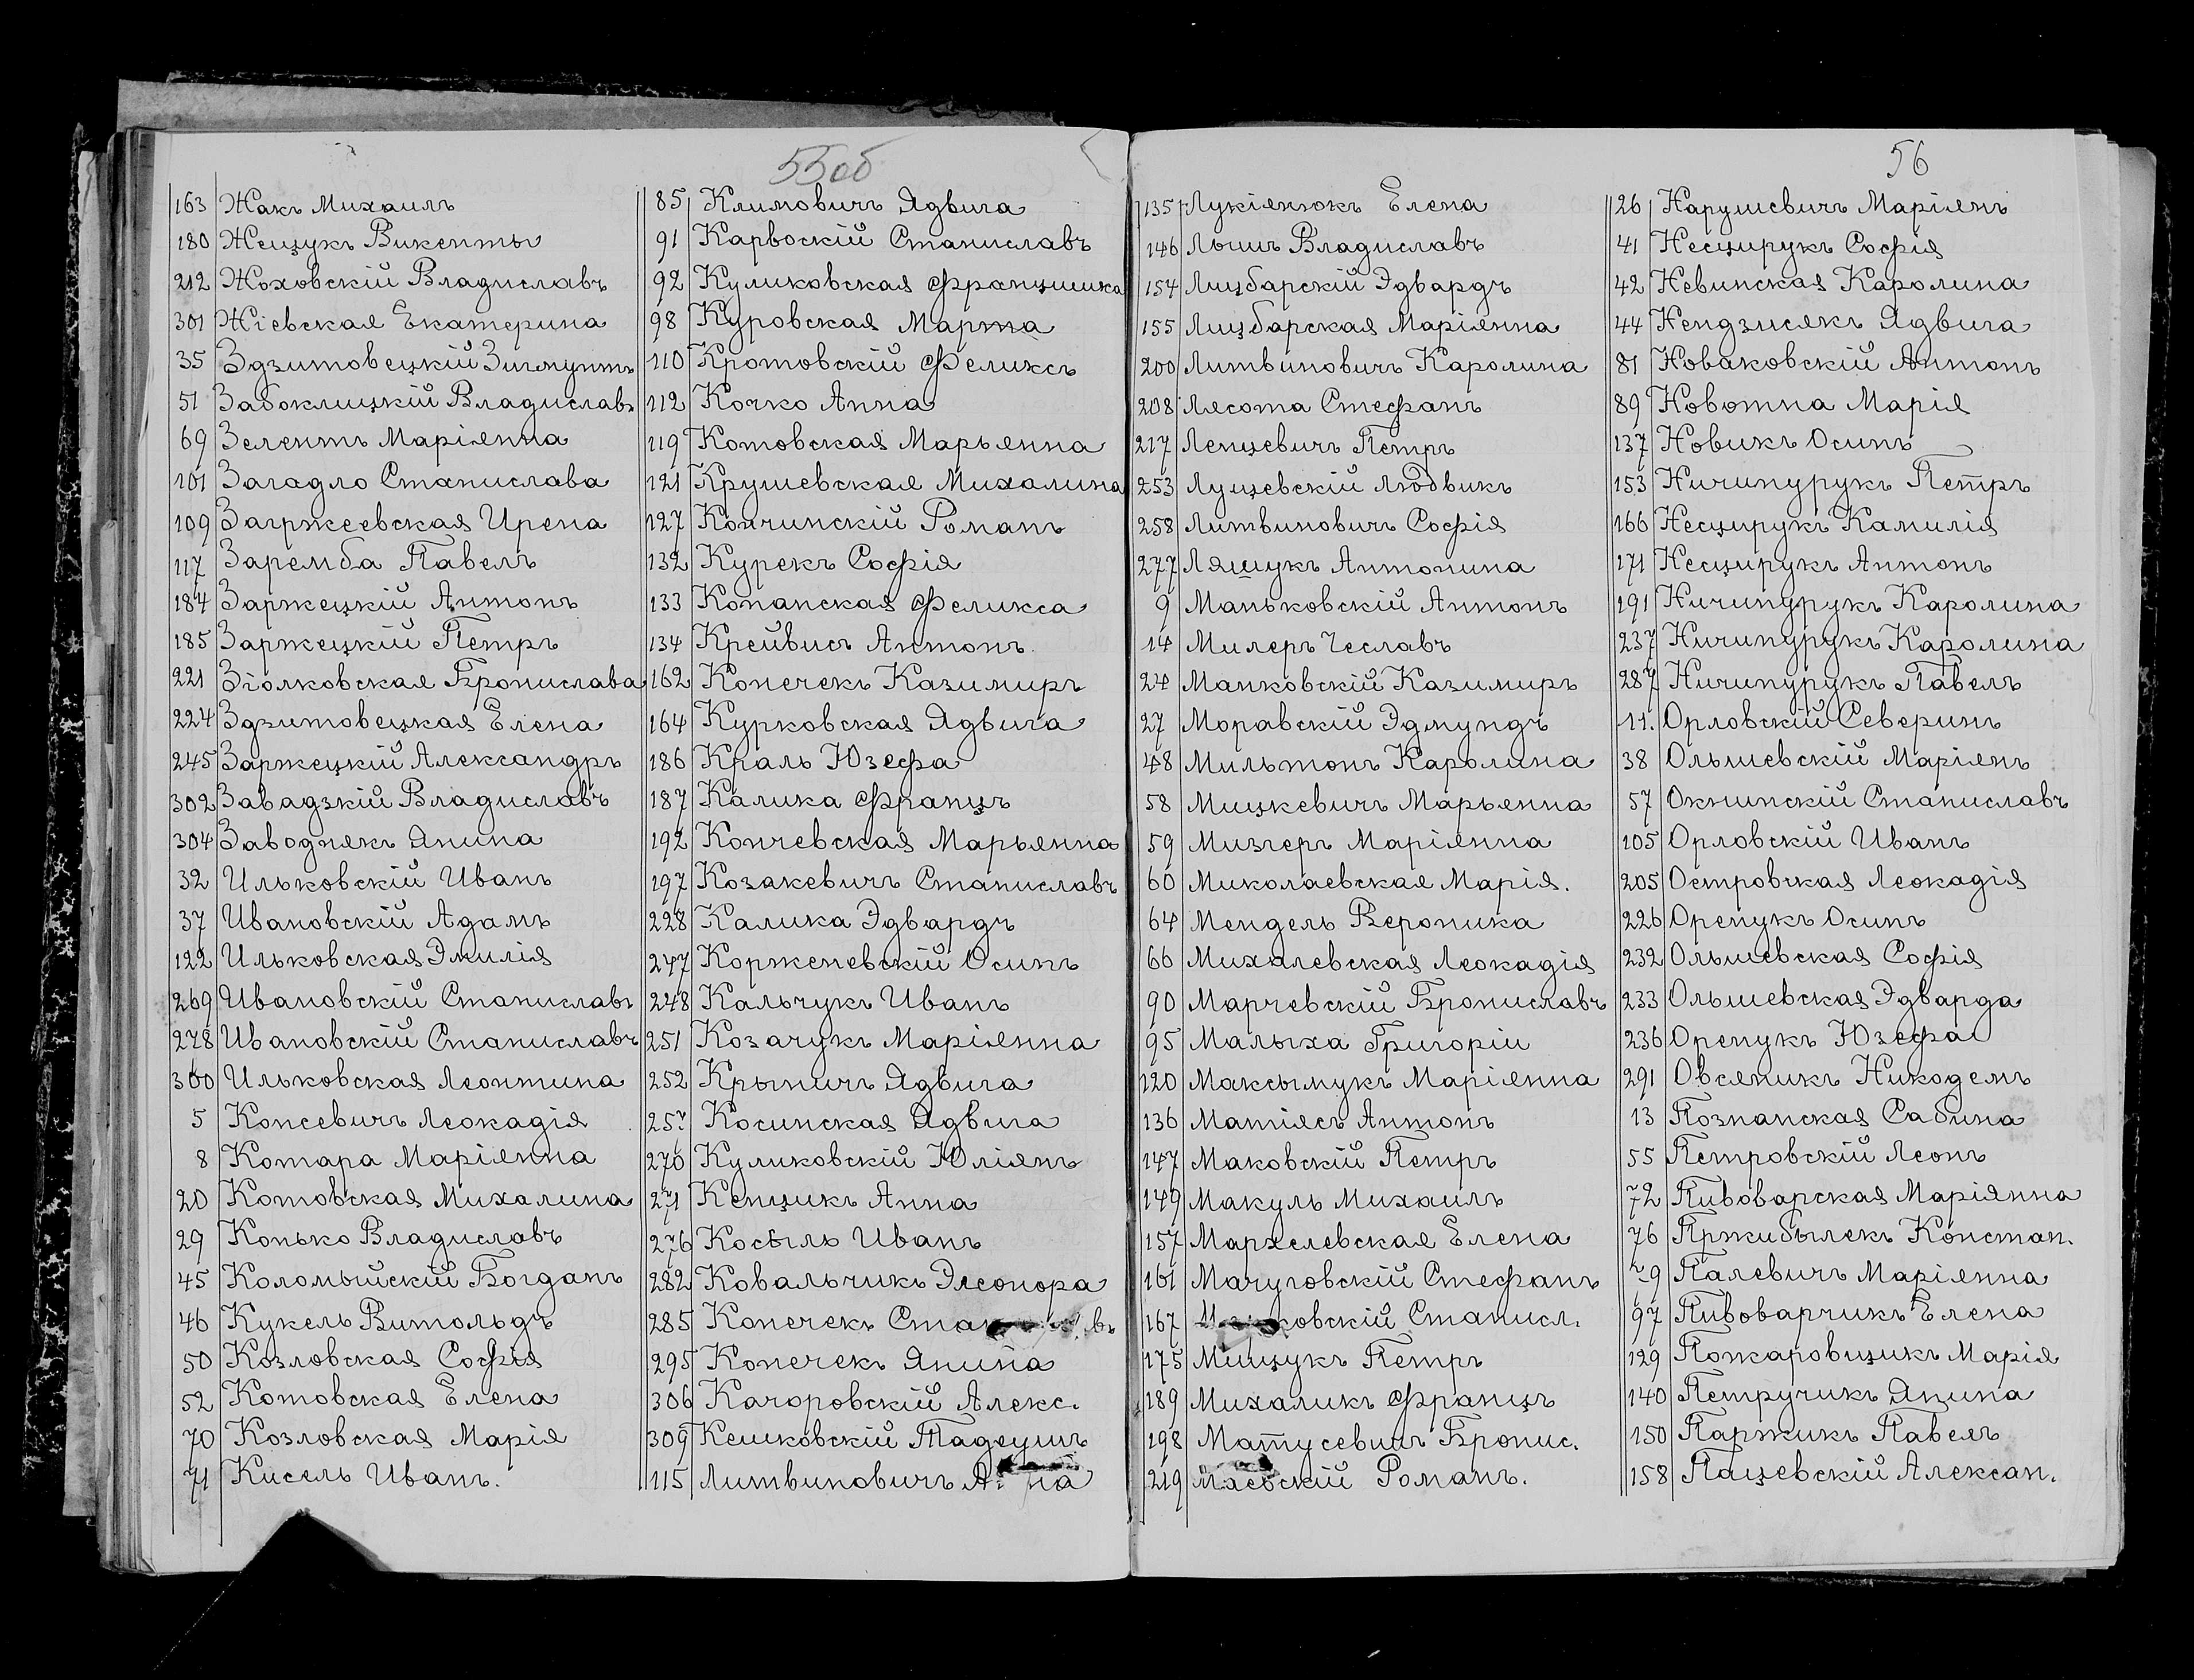 55об
163 Жакъ Михаилъ
180 Жещукъ Викенты
212 Жоховскій Владиславъ
301 Жіевская Екатерина
35 Здзитовецкій Зигмунтъ
51 Забоклицкій Владиславъ
69 Зелентъ Маріянна
101 Загадло Станислава
109 Загржеевская Ирена
117 Заремба Павелъ
184 Заржецкій Антонъ
185 Заржецкій Петръ
221 Зіолковская Бронислава
224 Здзитовецкая Елена
245 Заржецкій Александръ
302 Завадзкій Владиславъ
304 Заводнякъ Янина
32 Ильковскій Иванъ
37 Ивановскій Адамъ
122 Ильковская Эмилія
269 Ивановскій Станиславъ
278 Ивановскій Станиславъ
300 Ильковская Леонтина
5 Консевичъ Леокадія
8 Котара Маріянна
20 Котовская Михалина
29 Конько Владиславъ
45 Коломыйскій Богданъ
46 Кукель Витольдъ
50 Козловская Софія
52 Котовская Елена
70 Козловская Марія
71 Кисель Иванъ.
85 Климовичъ Ядвига
91 Карвоскій Станиславъ
92 Куликовская Францишка
98 Куровская Марта
110 Кротовскій Феликсъ
112 Кочко Анна
119 Котовская Марьянна
121 Крушевская Михалина
127 Кончинскій Романъ
132 Курекъ Софія
133 Копанская Феликса
134 Крейвисъ Антонъ.
162 Конечекъ Казимиръ
164 Курковская Ядвига
186 Краль Юзефа
187 Калика Францъ
192 Кончевская Марьянна
197 Козакевичъ Станиславъ
228 Калика Эдвардъ
247 Корженевскій Осипъ
248 Кальчукъ Иванъ
251 Козачукъ Маріянна
252 Крыничъ Ядвига
257 Косинская Ядвига
270 Куликовскій Юліянъ
271 Кенцикъ Анна
276 Косыль Иванъ
282 Ковальчикъ Элеонора
285 Конечекъ
295 Конечекъ Янина
306 Качоровскій Алекс.
309 Кешковскій Тадеушъ
115 Литвиновичъ
56
135 Лукіянюкъ Елена
146 Лышъ Владиславъ
154 Лицбарскій Эдвардъ
155 Лицбарская Маріянна
200 Литвиновичъ Каролина
208 Лясота Стефанъ
217 Ленцевичъ Петръ
253 Лущевскій Людвикъ
258 Литвиновичъ Софія
277 Ляшукъ Антонина
9 Маньковскій Антонъ
14 Милеръ Чеславъ
24 Манковскій Казимиръ
27 Моравскій Эдмундъ
48 Мильтонъ Каролина
58 Мицкевичъ Марьянна
59 Мизгеръ Маріянна
60 Миколаевская Марія.
64 Мендель Вероника
66 Михалевская Леокадія
90 Марчевскій Брониславъ
95 Малыха Григорій
120 Максымукъ Маріянна
136 Матіясъ Антонъ
147 Маковскій Петръ
149 Макуль Михаилъ
157 Мархелевская Елена
161 Мачуговскій Стефанъ
167 Станисл.
175 Мищукъ Петръ
189 Михаликъ Францъ
198 Матусевичъ Бронис.
219 Маевскій Романъ.
26 Нарушевичъ Маріянъ
41 Несцирукъ Софія
42 Невинская Каролина
44 Нендзисякъ Ядвига
81 Новаковскій Антонъ
89 Новотна Марія
137 Новикъ Осипъ
153 Ничипурукъ Петръ
166 Несцирукъ Камилія
171 Несцирукъ Антонъ
191 Ничипурукъ Каролина
237 Ничипурукъ Каролина
287 Ничипурукъ Павелъ
11. Орловскій Северинъ
38 Ольшевскій Маріянъ
57 Окнинскій Станиславъ
105 Орловскій Иванъ
205 Островская Леокадія
226 Оренукъ Осипъ
232 Ольшевская Софія
233 Ольшевская Эдварда
236 Оренукъ Юзефа
291 Овсяникъ Никодемъ
13 Познанская Сабина
55 Петровскій Леонъ
72 Пивоварская Маріянна
76 Пржибылекъ Констан.
79 Палевичъ Маріянна
97 Пивоварчикъ Елена
129 Пожаровщикъ Марія
140 Петручикъ Янина
150 Паржикъ Павелъ
158 Пацевскій Алексан.